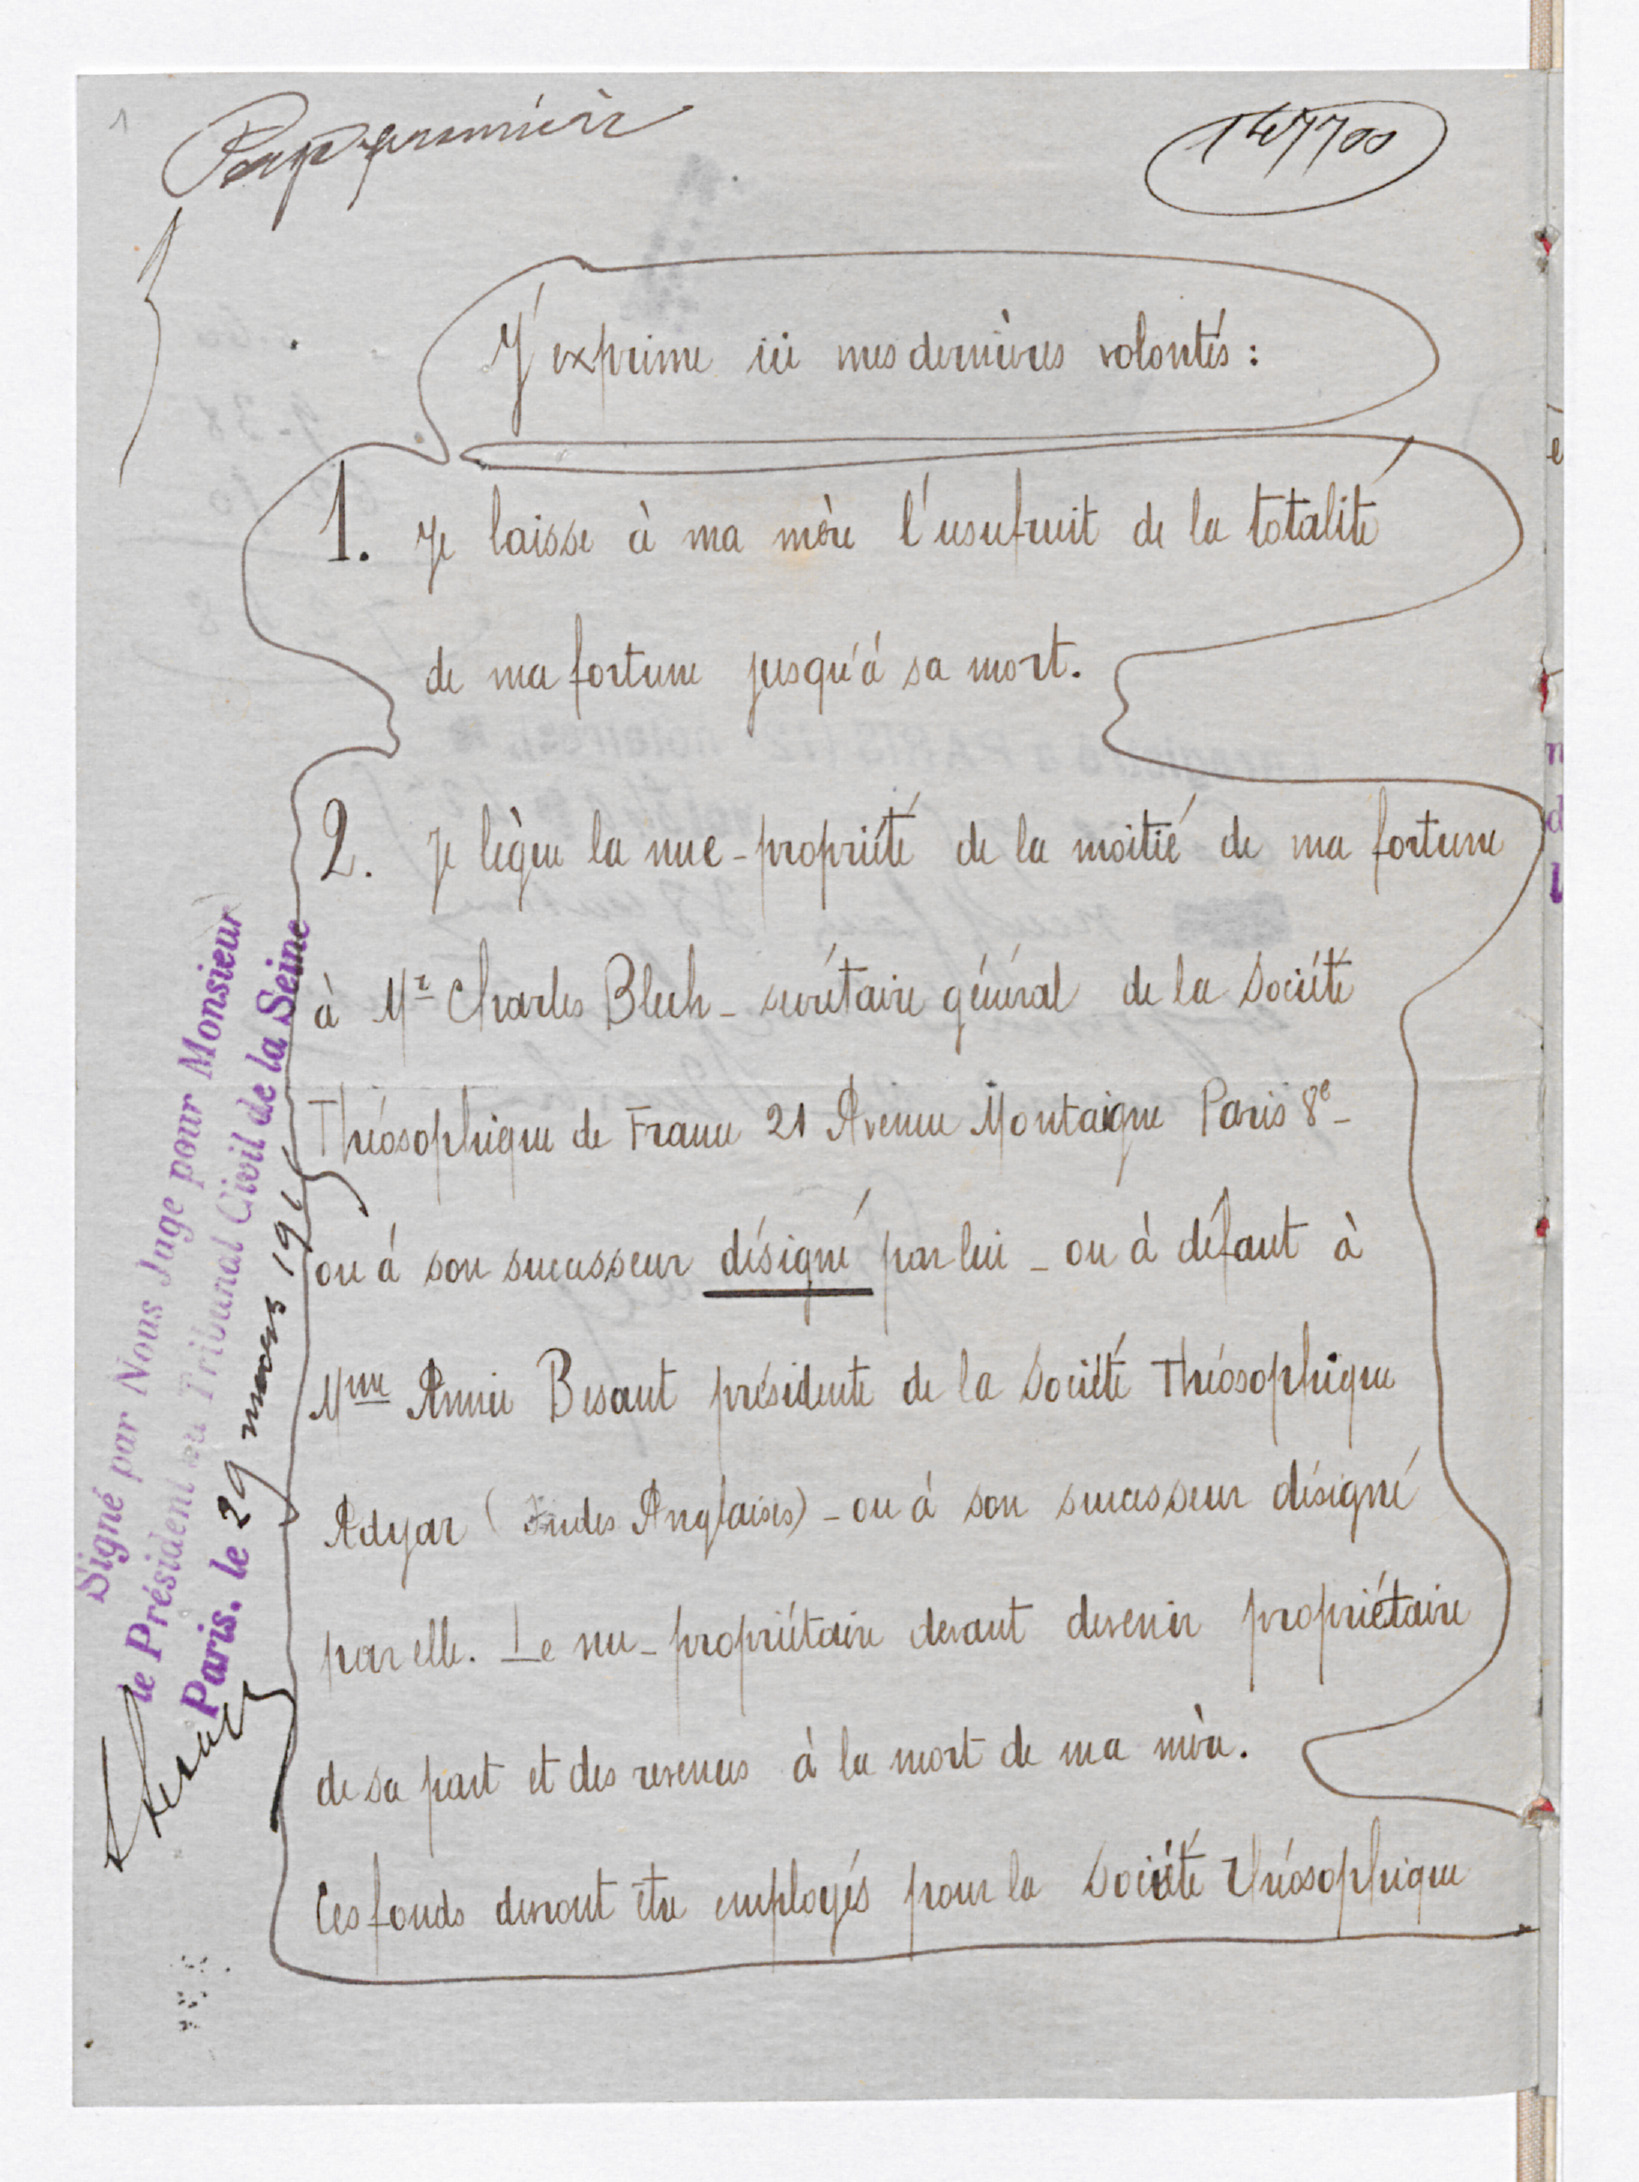 1
147700
J'exprime ici mes dernières volontés :
1. Je laisse à ma mère l'usufruit de la totalité
de ma fortune jusqu'à sa mort.
2. Je lègue la nue-propriété de la moitié de ma fortune
à Mr Charles Blech - secrétaire général de la Société
Théosophique de France 21 Avenue Montaigne Paris 8e -
ou à son successeur désigné par lui - ou à défaut à
Mme Annie Besant présidente de la Société Théosophique
Adyar (Indes Anglaises) - ou à son successeur désigné
par elle. Le nu-propriétaire devant devenir propriétaire
de sa part et des revenus à la mort de ma mère.
Ces fonds devront être employés pour la Société Théosophique
Signé par Nous Juge pour Monsieur
le Président du Tribunal Civil de la Seine
Paris. le 29 mars 191